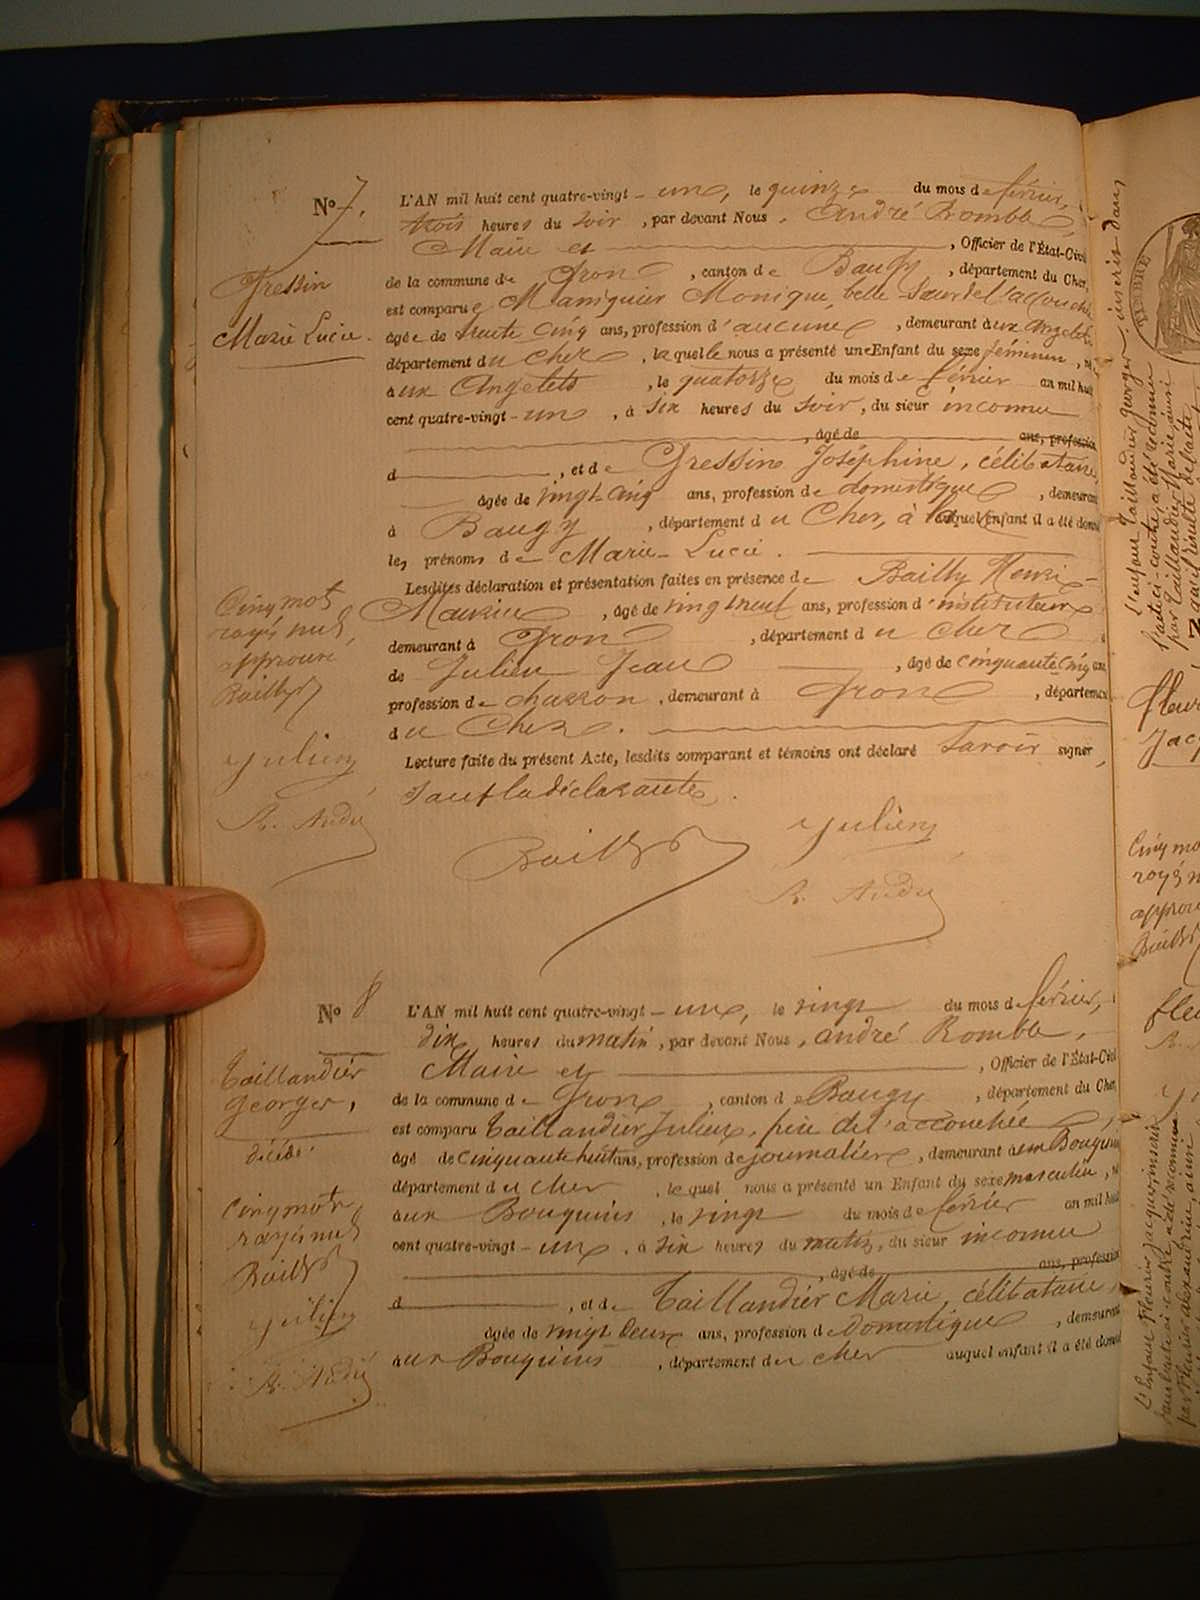 No 7.
Gressin
Marie Lucie.
L'AN mil huit cent quatre-vingt - une, le quinze du mois de février,
trois heures du soir, par devant Nous, André Romble,
Maire et , Officier de l'État-Civil
de la commune de Gron, canton de Baugy, département du Cher,
est comparue Maniquier Monique, belle sœur de l'accouchée
âgée de trente cinq ans, profession d'aucune, demeurant aux Angelets
département du Cher, laquelle nous a présenté un Enfant du sexe féminin, né
aux Angelets, le quatorze du mois de février an mil huit
cent quatre-vingt - une, à six heures du soir, du sieur inconnu
, âgé de ans, profession
d , et de Gressin Joséphine, célibataire,
âgée de vingt cinq ans, profession de domestique, demeurant
à Baugy, département du Cher, à laquel enfant il a été donné
les prénoms de Marie-Lucie.
Lesdites déclaration et présentation faites en présence de Bailly Henri-
Maurice, âgé de vingt neuf ans, profession d'instituteur
demeurant à Gron, département du Cher
de Julien Jean, âgé de cinquante cinq ans,
profession de charron, demeurant à Gron, département
du Cher.
Lecture faite du présent Acte, lesdits comparant et témoins ont déclaré savoir signer,
sauf la déclarante.
Cinq mots
rayés nuls
approuvé
Bailly
Julien
R. André
Bailly
Julien
R. André
No 8
Taillandier
Georges,
décédé.
L'AN mil huit cent quatre-vingt - une, le vingt du mois de février,
dix heures du matin, par devant Nous, André Romble,
Maire et , Officier de l'État-Civil
de la commune de Gron, canton de Baugy, département du Cher,
est comparu Taillandier Julien, père de l'accouchée
âgé de cinquante huit ans, profession de journalier, demeurant aux Bouquins
département du Cher, lequel nous a présenté un Enfant du sexe masculin, né
aux Bouquins, le vingt du mois de février an mil huit
cent quatre-vingt - une, à six heures du matin, du sieur inconnu
, âgé de ans, profession
d , et de Taillandier Marie, célibataire,
âgée de vingt deux ans, profession de Domestique, demeurant
aux Bouquins, département du Cher auquel enfant il a été donné
Cinq mots
rayés nuls
Bailly
Julien
R. André
L'enfant Taillandier Georges inscrit dans
l'acte ci-contre, a été reconnu
par Taillandier Marie, ainsi
TIMBRE
Cinq mo
rayés n
approu
Bailly
L'Enfant Fleurier Jacques inscrit
dans l'acte ci-contre, a été reconnu
par Fleurier Alexandrine, ainsi